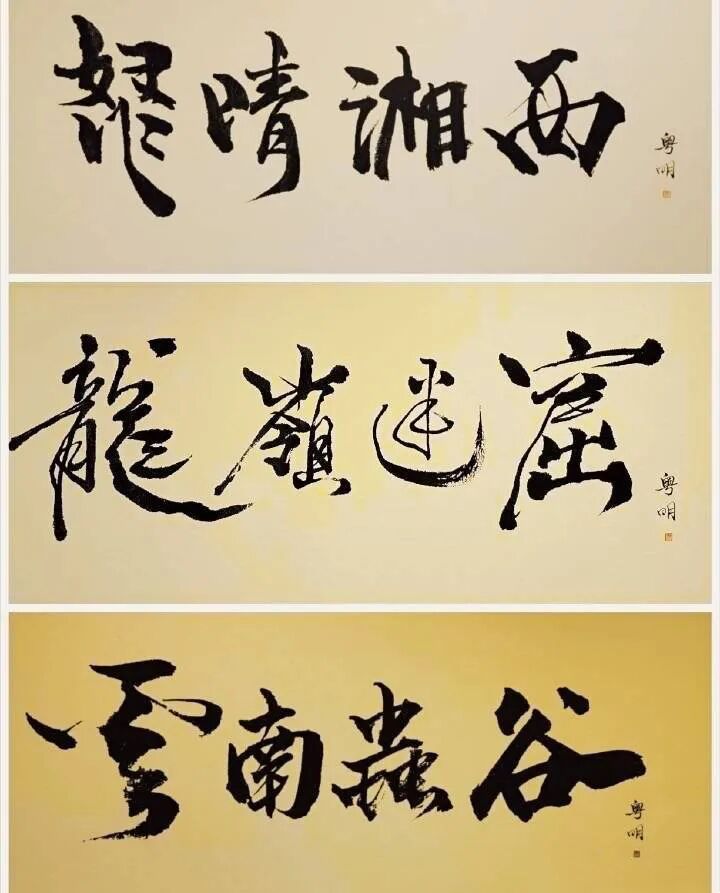 怒晴湘西
粤明
龍嶺迷窟
粤明
雲南蟲谷
粤明